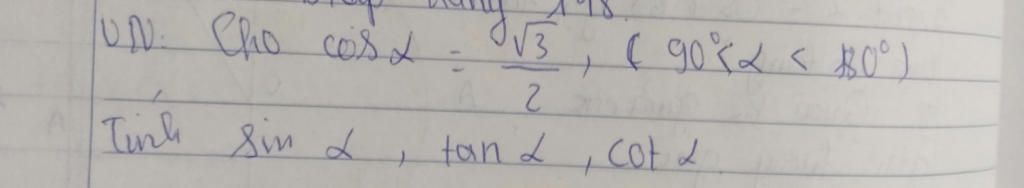 VD: Cho cos α = √3/2, (90° < α < 180°)
Tính sin α, tan α, cot α